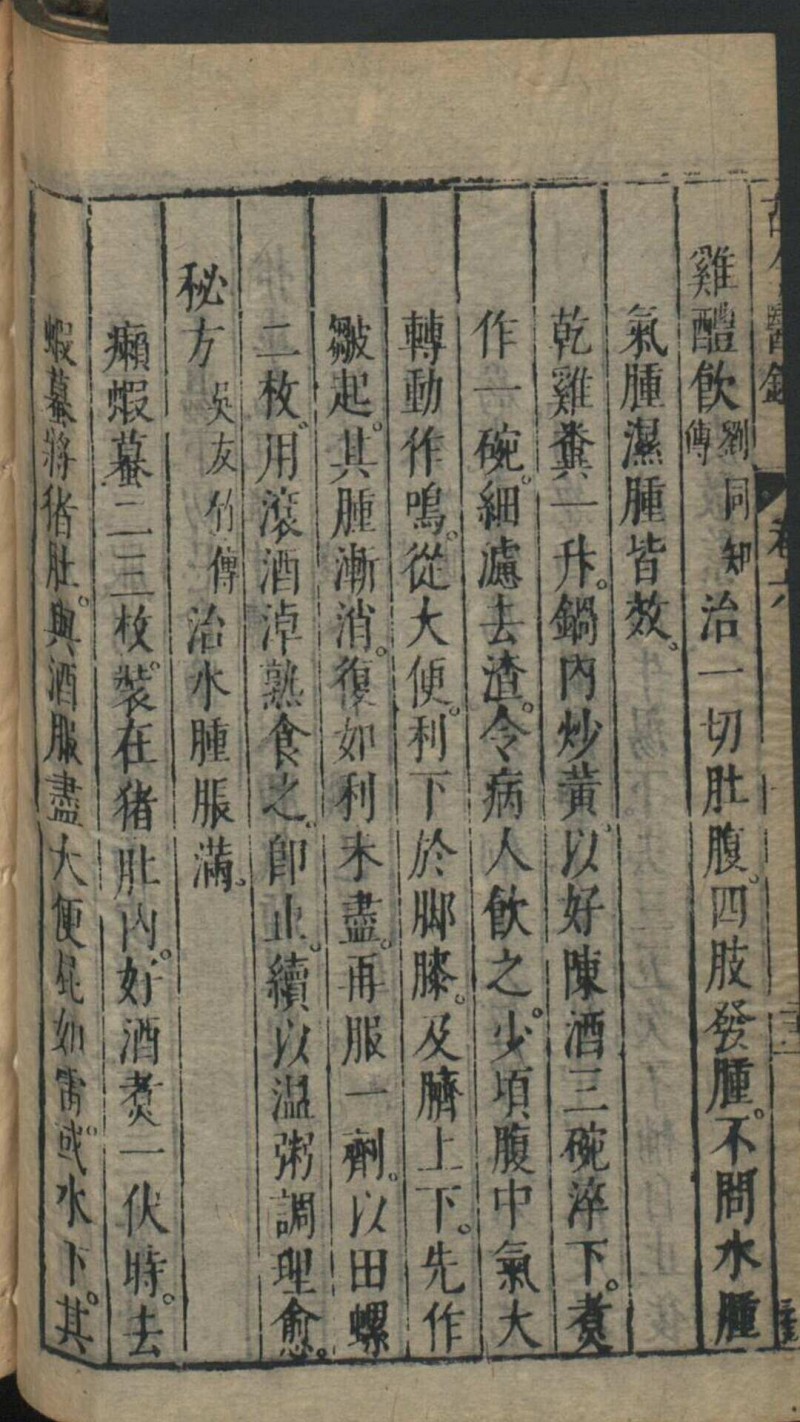 雞醴飲劉同知傳治一切肚腹。四肢發腫。不問水腫
氣腫濕腫皆效。
乾雞糞一升。鍋內炒黃。以好陳酒三碗淬下。煑
作一碗。細濾去渣。令病人飲之。少頃腹中氣大
轉動作鳴。從大便。利下於脚膝。及臍上下。先作
皺起。其腫漸消。復如利未盡。再服一劑。以田螺
二枚。用滾酒淖熟食之。卽止。續以温粥調理愈。
秘方吳友竹傳治水腫脹滿。
癩蝦蟇二三枚。裝在猪肚內。好酒煑一伏時。去
蝦蟇將猪肚。與酒服盡大便屁如雷。或水下。其